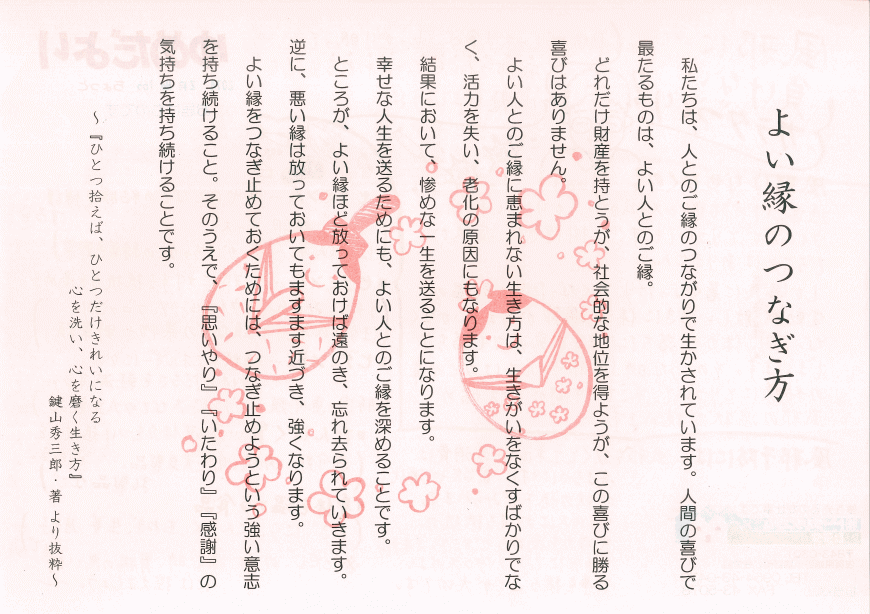 よい縁のつなぎ方
私たちは、人とのご縁のつながりで生かされています。人間の喜びで
最たるものは、よい人とのご縁。
どれだけ財産を持とうが、社会的な地位を得ようが、この喜びに勝る
喜びはありません。
よい人とのご縁に恵まれない生き方は、生きがいをなくすばかりでな
く、活力を失い、老化の原因にもなります。
結果において、惨めな一生を送ることになります。
幸せな人生を送るためにも、よい人とのご縁を深めることです。
ところが、よい縁ほど放っておけば遠のき、忘れ去られていきます。
逆に、悪い縁は放っておいてもますます近づき、強くなります。
よい縁をつなぎ止めておくためには、つなぎ止めようという強い意志
を持ち続けること。そのうえで、『思いやり』『いたわり』『感謝』の
気持ちを持ち続けることです。
～『ひとつ拾えば、ひとつだけきれいになる
心を洗い、心を磨く生き方』
鍵山秀三郎・著 より抜粋～